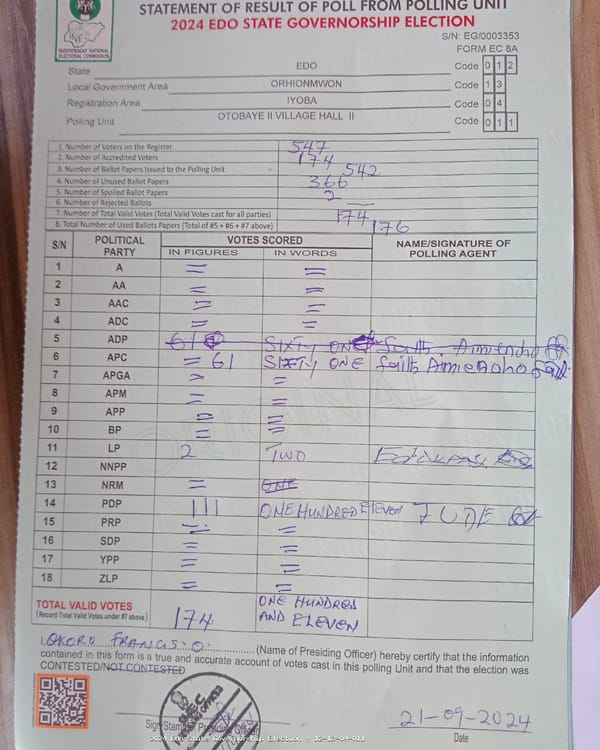 STATEMENT OF RESULT OF POLL FROM POLLING UNIT
2024 EDO STATE GOVERNORSHIP ELECTION
INEC
INDEPENDENT NATIONAL ELECTORAL COMMISSION
S/N: EG/0003353
FORM EC 8A
State EDO Code 0 1 2
Local Government Area ORHIONMWON Code 1 3
Registration Area IYOBA Code 0 4
Polling Unit OTOBAYE II VILLAGE HALL II Code 0 1 1
1. Number of Voters on the Register 547
2. Number of Accredited Voters 174
3. Number of Ballot Papers Issued to the Polling Unit 542
4. Number of Unused Ballot Papers 366
5. Number of Spoiled Ballot Papers 2
6. Number of Rejected Ballots —
7. Number of Total Valid Votes (Total Valid Votes cast for all parties) 174
8. Total Number of Used Ballots Papers (Total of #5 + #6 + #7 above) 176
S/N POLITICAL PARTY VOTES SCORED NAME/SIGNATURE OF POLLING AGENT
IN FIGURES IN WORDS
1 A = =
2 AA = =
3 AAC = =
4 ADC = =
5 ADP 61 SIXTY ONE faith Amienoho
6 APC = 61 SIXTY ONE faith Amienoho
7 APGA = =
8 APM = =
9 APP = =
10 BP = =
11 LP 2 TWO
12 NNPP
13 NRM = ONE
14 PDP 111 ONE HUNDRED ELEVEN JUDE
15 PRP = =
16 SDP = =
17 YPP = =
18 ZLP = =
TOTAL VALID VOTES 174 ONE HUNDRED AND ELEVEN
(Record Total Valid Votes under #7 above)
ORIGINAL
I, OKORO FRANCIS O. (Name of Presiding Officer) hereby certify that the information
contained in this form is a true and accurate account of votes cast in this polling Unit and that the election was
CONTESTED/NOT CONTESTED
21-09-2024
Date
2024 Edo State Governorship Election : 12-13-04-011